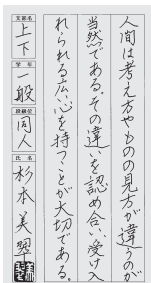 人間は考え方やものの見方が違うのが
当然である。その違いを認め合い、受け入
れられる広い心を持つことが大切である。
支部名
上下
学年
一般
段級位
同人
氏名
杉本美翠